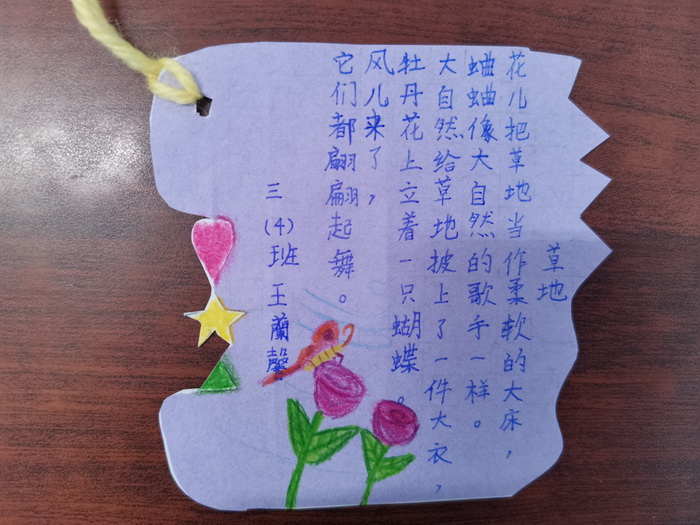 草地
花儿把草地当作柔软的大床，
蛐蛐像大自然的歌手一样。
大自然给草地披上了一件大衣，
牡丹花上立着一只蝴蝶。
风儿来了，
它们都翩翩起舞。
三（4）班 王蘭馨